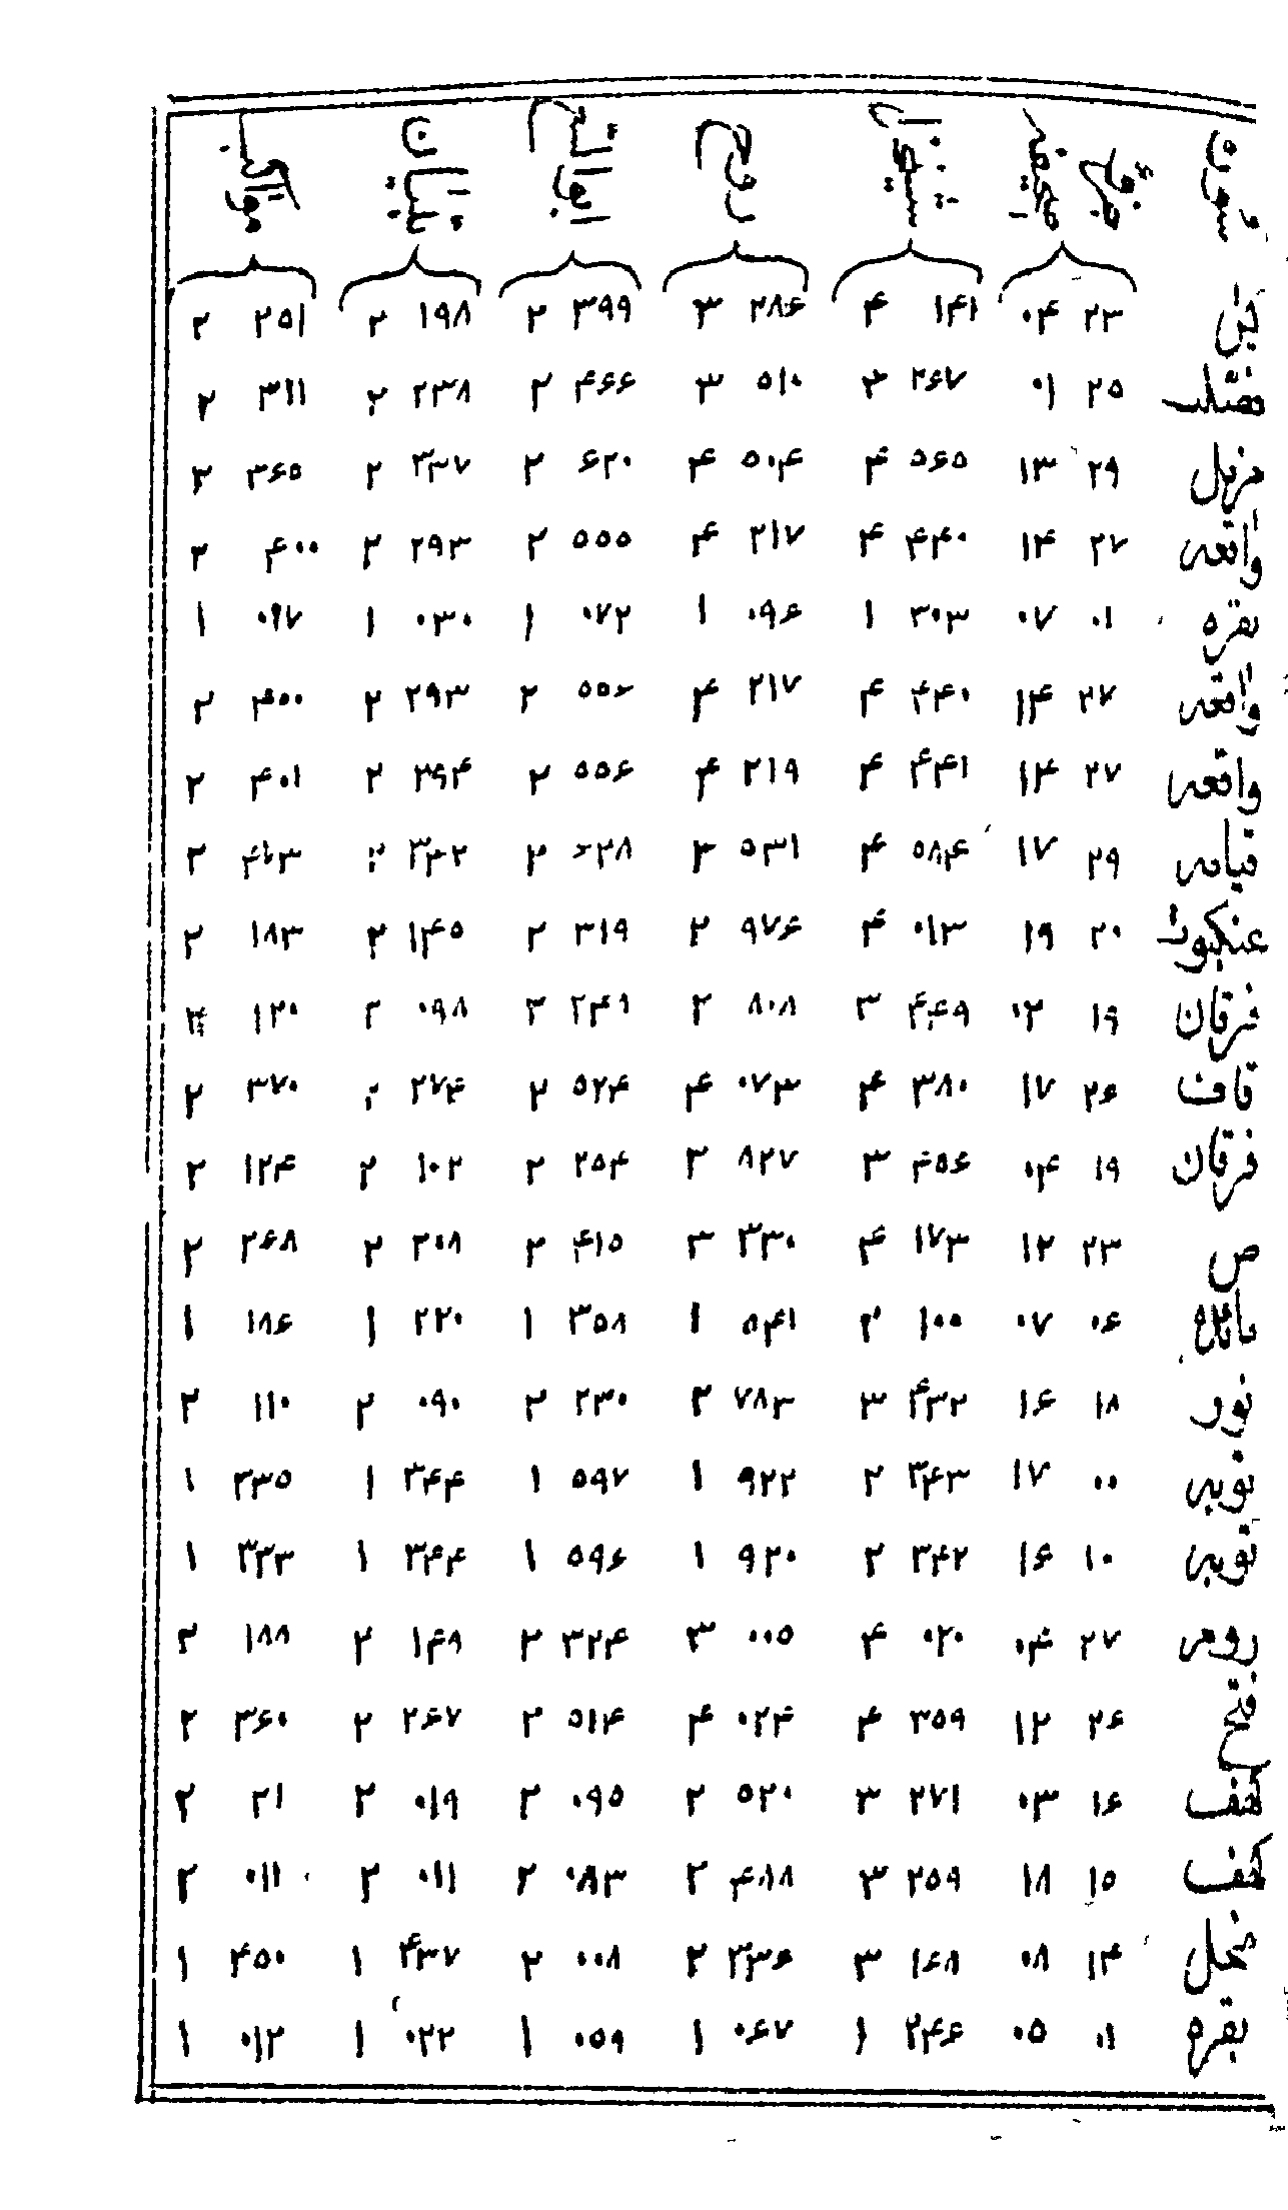 سوره جزؤ صحیفه شیخزاده روح ابو السعود تبیان مواکب
۲۳ ۰۴ ۱۴۱ ۴ ۲۸۶ ۳ ۳۹۹ ۲ ۱۹۸ ۲ ۲۵۱ ۲
فصّلت ۲۵ ۰۱ ۲۶۷ ۴ ۵۱۰ ۳ ۴۶۶ ۲ ۲۳۸ ۲ ۳۱۱ ۲
مزمل ۲۹ ۱۳ ۵۶۵ ۴ ۵۰۴ ۴ ۶۲۰ ۲ ۳۳۷ ۲ ۴۶۵ ۲
واقعه ۲۷ ۱۴ ۴۴۰ ۴ ۲۱۷ ۴ ۵۵۵ ۲ ۲۹۳ ۲ ۴۰۰ ۲
بقره ۰۱ ۰۷ ۳۰۳ ۱ ۰۹۶ ۱ ۰۷۲ ۱ ۰۳۰ ۱ ۰۹۷ ۱
واقعه ۲۷ ۱۴ ۴۴۰ ۴ ۲۱۷ ۴ ۵۵۶ ۲ ۲۹۳ ۲ ۴۰۰ ۲
واقعه ۲۷ ۱۴ ۴۴۱ ۴ ۲۱۹ ۴ ۵۵۶ ۲ ۲۹۴ ۲ ۴۰۱ ۲
قیامه ۲۹ ۱۷ ۵۸۴ ۴ ۵۳۱ ۴ ۶۲۸ ۲ ۳۴۲ ۲
عنکبوت ۲۰ ۱۹ ۰۱۳ ۴ ۹۷۶ ۲ ۳۱۹ ۲ ۱۴۵ ۲ ۱۸۳ ۲
فرقان ۱۹ ۰۲ ۴۴۹ ۳ ۸۰۸ ۲ ۲۴۹ ۲ ۰۹۸ ۲ ۱۲۰
قاف ۲۶ ۱۷ ۳۸۰ ۴ ۰۷۳ ۴ ۵۲۴ ۲ ۲۷۴ ۲ ۳۷۰ ۲
فرقان ۱۹ ۰۴ ۴۵۶ ۳ ۸۲۷ ۲ ۲۵۴ ۲ ۱۰۲ ۲ ۱۲۴ ۲
ص ۲۳ ۱۲ ۱۷۳ ۴ ۳۳۰ ۳ ۴۱۵ ۲ ۲۰۸ ۲ ۲۶۸ ۲
مائده ۰۶ ۰۷ ۱۰۰ ۲ ۵۴۱ ۱ ۳۵۸ ۱ ۲۲۰ ۱ ۱۸۶ ۱
نور ۱۸ ۱۶ ۴۳۲ ۳ ۷۸۳ ۲ ۲۳۰ ۲ ۰۹۰ ۲ ۱۱۰ ۲
توبه ۰۰ ۱۷ ۳۴۳ ۲ ۹۲۲ ۱ ۵۹۷ ۱ ۳۴۴ ۱ ۳۳۵ ۱
توبه ۱۰ ۱۶ ۳۴۲ ۲ ۹۲۰ ۱ ۵۹۶ ۱ ۳۴۴ ۱ ۳۳۳ ۱
روم ۲۷ ۰۴ ۰۲۰ ۴ ۰۰۵ ۳ ۳۲۴ ۲ ۱۴۹ ۲ ۱۸۸ ۲
فتح ۲۶ ۱۲ ۳۵۹ ۴ ۰۲۴ ۴ ۵۱۴ ۲ ۲۶۷ ۲ ۳۶۰ ۲
کهف ۱۶ ۰۳ ۲۷۱ ۳ ۵۲۰ ۲ ۰۹۵ ۲ ۰۱۹ ۲ ۲۱ ۲
کهف ۱۵ ۱۸ ۲۵۹ ۳ ۴۸۸ ۲ ۰۸۳ ۲ ۰۱۱ ۲ ۰۱۱ ۲
نحل ۱۴ ۰۸ ۱۶۸ ۳ ۳۳۶ ۲ ۰۰۸ ۲ ۴۳۷ ۱ ۴۵۰ ۱
بقره ۰۱ ۰۵ ۲۴۶ ۱ ۰۶۷ ۱ ۰۵۹ ۱ ۰۲۲ ۱ ۰۱۲ ۱